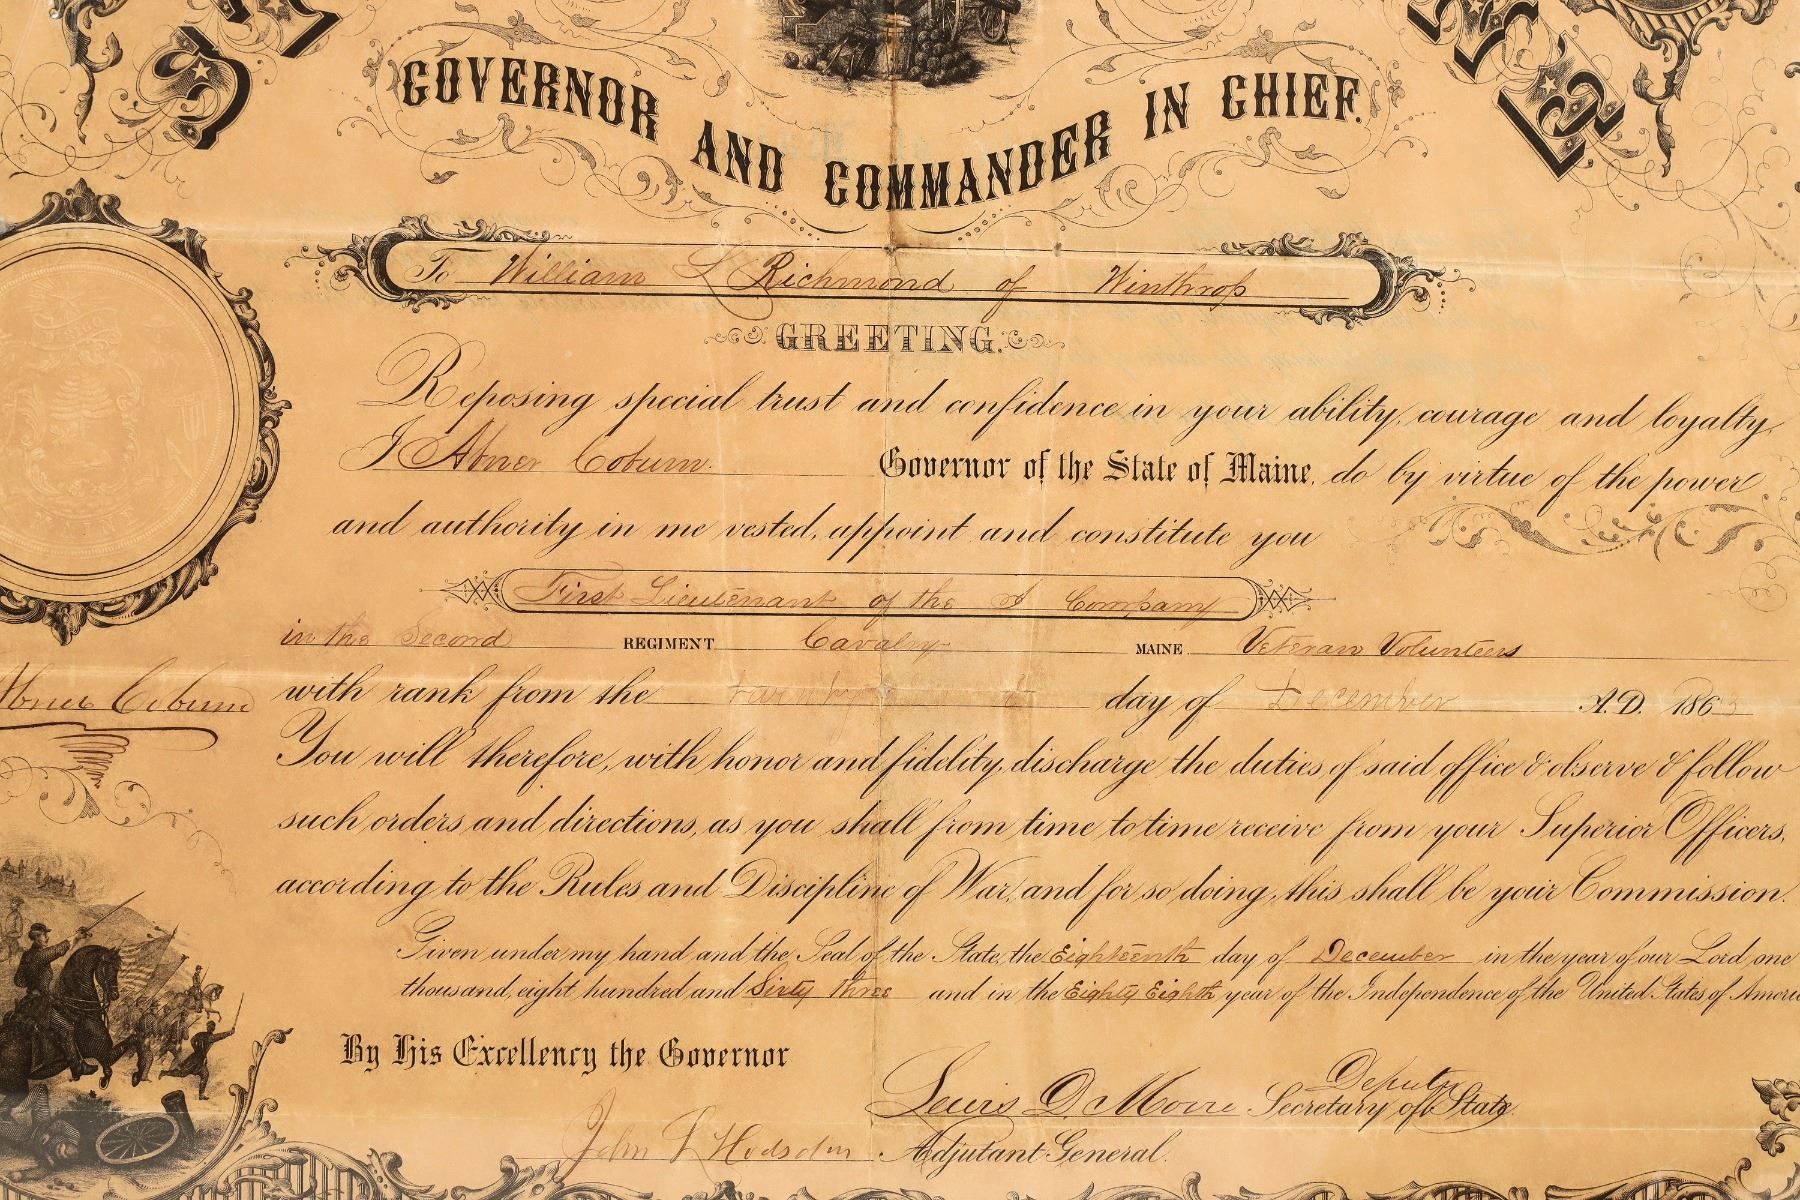 GOVERNOR AND COMMANDER IN CHIEF.
To William L Richmond of Winthrop
GREETING.
Reposing special trust and confidence in your ability, courage and loyalty,
I Abner Coburn. Governor of the State of Maine, do by virtue of the power
and authority in me vested, appoint and constitute you
First Lieutenant of the Company
in the Second REGIMENT Cavalry MAINE Veteran Volunteers
Abner Coburn
with rank from the day of December A.D. 1863
You will therefore, with honor and fidelity, discharge the duties of said office & observe & follow
such orders and directions, as you shall from time to time receive from your Superior Officers,
according to the Rules and Discipline of War, and for so doing, this shall be your Commission.
Given under my hand and the Seal of the State, the Eighteenth day of December in the year of our Lord one
thousand, eight hundred and Sixty three and in the Eighty Eighth year of the Independence of the United States of Americ
By His Excellency the Governor
Lewis D Moore Deputy Secretary of State.
John L Hodsdon Adjutant General.